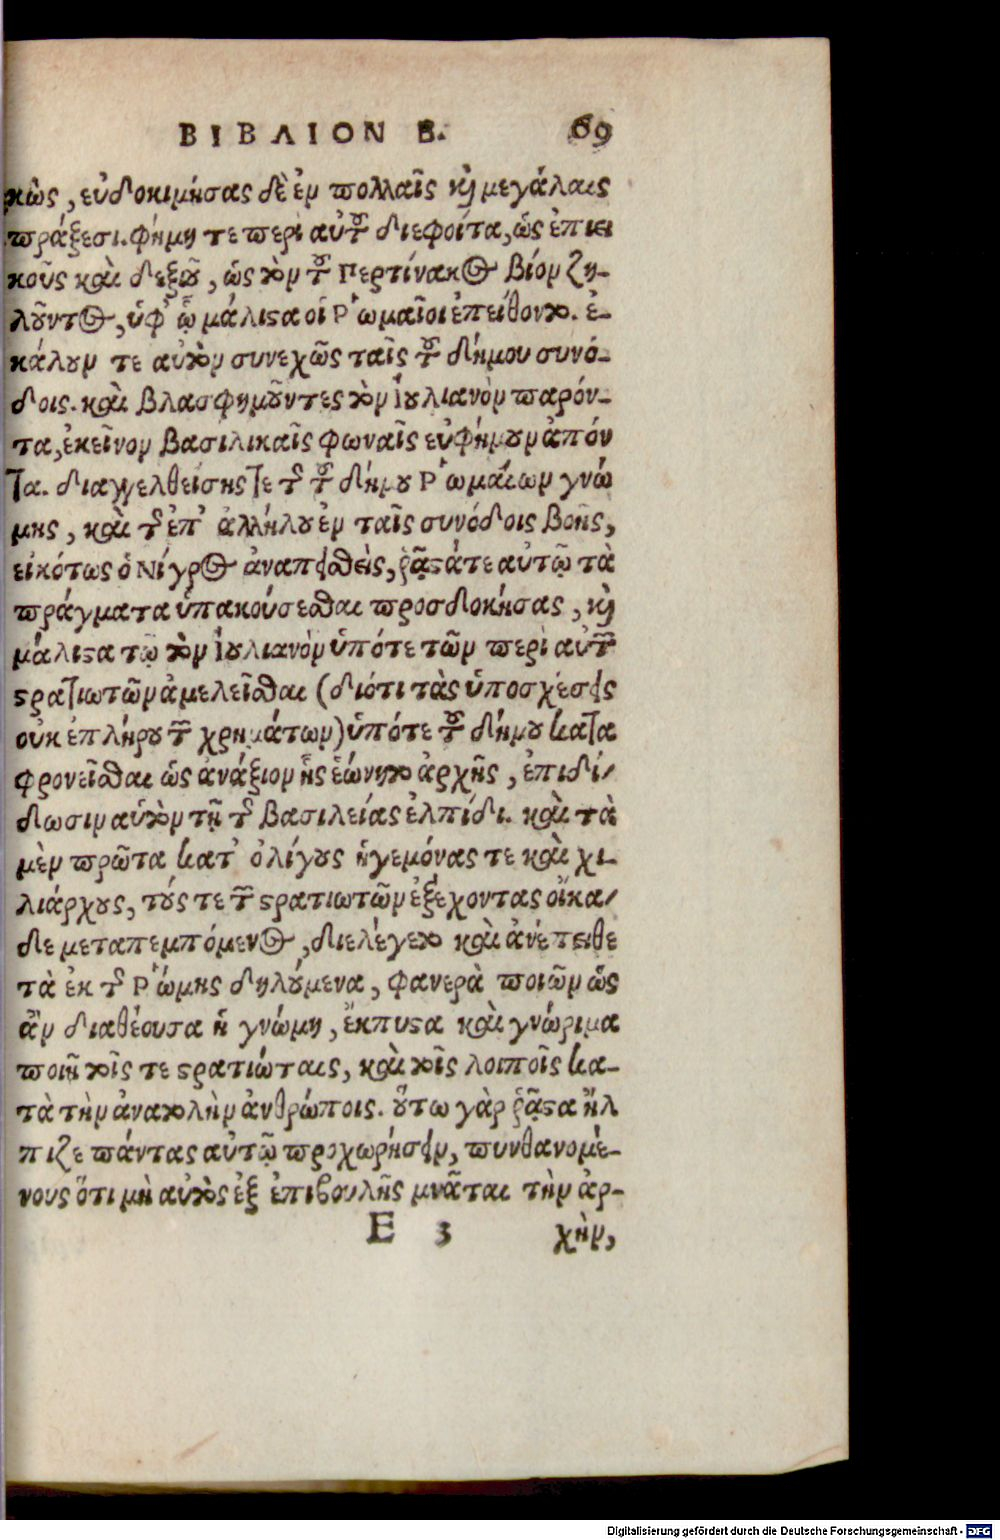 ΒΙΒΛΙΟΝ Β. 69
κὼς, εὐδοκιμήσας δὲ ἐν πολλαῖς κỳ μεγάλαις
πράξεσι. φήμη τε περὶ αὐτοῦ διεφοίτα, ὡς ἐπιει
κοῦς καὶ δεξιοῦ, ὡς τὸν τοῦ Περτίνακος βίον ζη-
λοῦντος, ὑφ' ᾧ μάλιστα οἱ Ῥωμαῖοι ἐπείθοντο. ἐ-
κάλουν τε αὐτὸν συνεχῶς ταῖς τοῦ δήμου συνό-
δοις. καὶ βλασφημοῦντες τὸν Ἰουλιανὸν παρόν-
τα, ἐκεῖνον βασιλικαῖς φωναῖς εὐφήμουν ἀπόν
τα. διαγγελθείσης τε τῆς τοῦ δήμου Ῥωμαίων γνώ
μης, καὶ τῆς ἐπ' ἀλλήλου ἐν ταῖς συνόδοις βοῆς,
εἰκότως ὁ Νίγρος ἀναπεισθεὶς, ῥᾷστά τε αὐτῷ τὰ
πράγματα ὑπακούσεσθαι προσδοκήσας, κỳ
μάλιστα τῷ τὸν Ἰουλιανὸν ὑπό τε τῶν περὶ αὐτὸν
στρατιωτῶν ἀμελεῖσθαι (διότι τὰς ὑποσχέσεις
οὐκ ἐπλήρου τῶν χρημάτων) ὑπό τε τοῦ δήμου κατα
φρονεῖσθαι ὡς ἀνάξιον ἧς ἐώνητο ἀρχῆς, ἐπιδί-
δωσιν αὑτὸν τῇ τῆς βασιλείας ἐλπίδι. καὶ τὰ
μὲν πρῶτα κατ' ὀλίγους ἡγεμόνας τε καὶ χι-
λιάρχους, τούς τε τῶν στρατιωτῶν ἐξέχοντας οἴκα-
δε μεταπεμπόμενος, διελέγετο καὶ ἀνέπειθε
τὰ ἐκ τῆς Ῥώμης δηλούμενα, φανερὰ ποιῶν ὡς
ἂν διαθέουσα ἡ γνώμη, ἔκπυστα καὶ γνώριμα
ποιῇ τοῖς τε στρατιώταις, καὶ τοῖς λοιποῖς κα-
τὰ τὴν ἀνατολὴν ἀνθρώποις. οὕτω γὰρ ῥᾷστα ἤλ
πιζε πάντας αὐτῷ προχωρήσειν, πυνθανομέ-
νους ὅτι μὴ αὐτὸς ἐξ ἐπιβουλῆς μνᾶται τὴν ἀρ-
E 3 χὴν,
Digitalisierung gefördert durch die Deutsche Forschungsgemeinschaft - DFG